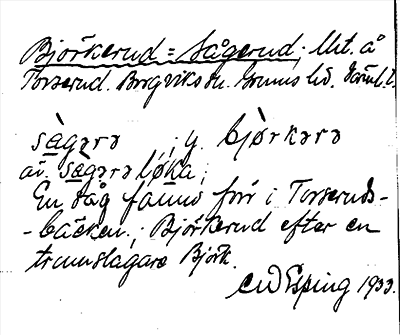 Björkerud = Sågerud; Utt. å
Torserud. Borgviks sn. Grums hd. Värml. l.
sàgərə ; y. bjørkərə
äv. sagərəløka;
En såg fanns förr i Torseruds-
-bäcken.; Björkerud efter en
trumslagare Björk.
CWEsping 1933.